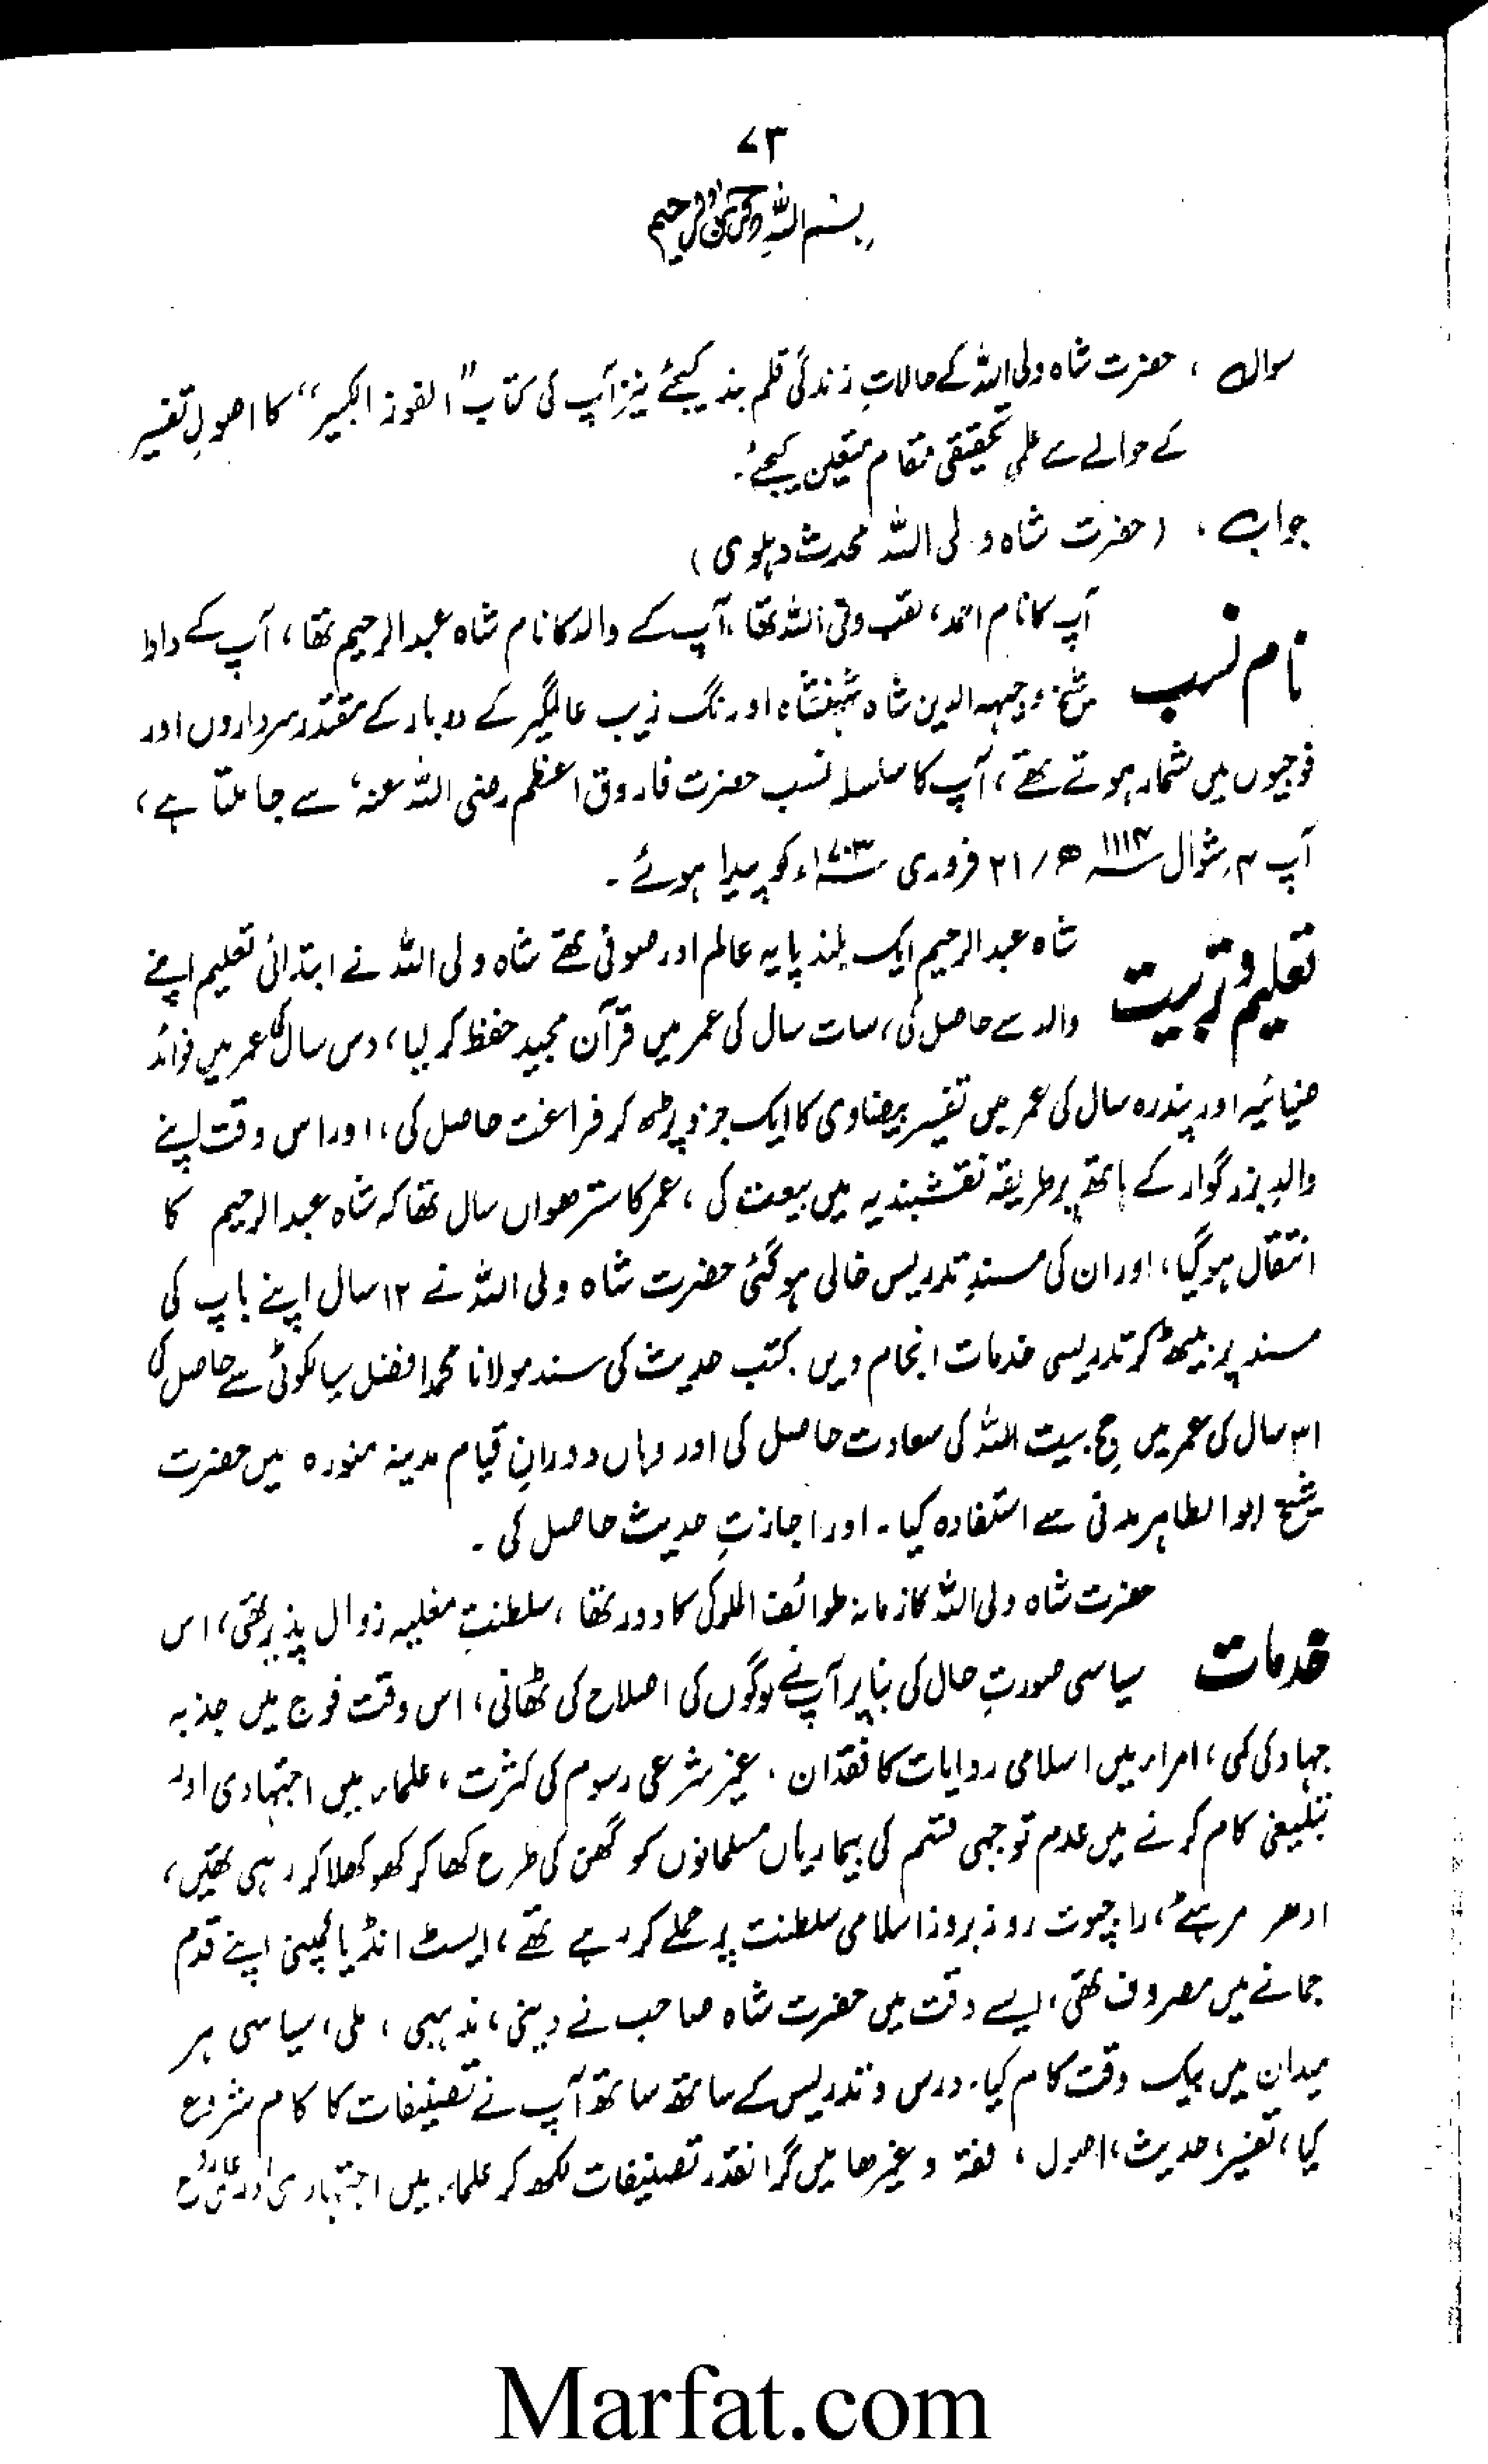 ۷۳
بسم اللہ الرحمن الرحیم
سوال ، حضرت شاہ ولی اللہ کے حالاتِ زندگی قلم بند کیجئے نیز آپ کی کتاب "الفوز الکبیر" کا اصولِ تفسیر
کے حوالے سے علمی تحقیقی مقام متعین کیجئے۔
جواب ، (حضرت شاہ ولی اللہ محدث دہلوی)
نام نسب آپ کا نام احمد، لقب ولی اللہ تھا ، آپ کے والد کا نام شاہ عبدالرحیم تھا ، آپ کے دادا
شیخ وجیہہ الدین شاہ شہنشاہ اورنگ زیب عالمگیر کے دربار کے مقتدر سرداروں اور
فوجیوں میں شمار ہوتے تھے ، آپ کا سلسلہ نسب حضرت فاروق اعظم رضی اللہ عنہ، سے جا ملتا ہے ،
آپ ۴ر شوال ۱۱۱۴ھ / ۲۱ فروری ۱۷۰۳ء کو پیدا ہوئے ۔
تعلیم و تربیت شاہ عبدالرحیم ایک بلند پایہ عالم اور صوفی تھے شاہ ولی اللہ نے ابتدائی تعلیم اپنے
والد سے حاصل کی ، سات سال کی عمر میں قرآن مجید حفظ کر لیا ، دس سال کی عمر میں فوائد
ضیائیہ اور پندرہ سال کی عمر میں تفسیر بیضاوی کا ایک جزو پڑھ کر فراغت حاصل کی ، اور اس وقت اپنے
والدِ بزرگوار کے ہاتھ پر طریقہ نقشبندیہ میں بیعت کی ، عمر کا سترھواں سال تھا کہ شاہ عبدالرحیم کا
انتقال ہو گیا ، اور ان کی مسندِ تدریس خالی ہو گئی حضرت شاہ ولی اللہ نے ۱۲ سال اپنے باپ کی
مسند پر بیٹھ کر تدریسی خدمات انجام دیں . کتب حدیث کی سند مولانا محمد افضل سیالکوٹی سے حاصل کی
۳۱ سال کی عمر میں حج بیت اللہ کی سعادت حاصل کی اور وہاں دورانِ قیام مدینہ منورہ میں حضرت
شیخ ابو الطاہر مدنی سے استفادہ کیا ۔ اور اجازتِ حدیث حاصل کی ۔
خدمات حضرت شاہ ولی اللہ کا زمانہ طوائف الملوکی کا دور تھا ، سلطنتِ مغلیہ زوال پذیر تھی ، اس
سیاسی صورتِ حال کی بنا پر آپ نے لوگوں کی اصلاح کی ٹھانی ، اس وقت فوج میں جذبہ
جہاد کی کمی ، امراء میں اسلامی روایات کا فقدان ، غیر شرعی رسوم کی کثرت ، علماء میں اجتہادی اور
تبلیغی کام کرنے میں عدم توجہی قسم کی بیماریاں مسلمانوں کو گھن کی طرح کھا کر کھوکھلا کر رہی تھیں ،
ادھر مرہٹے ، راجپوت روز بروز اسلامی سلطنت پر حملے کر رہے تھے ، ایسٹ انڈیا کمپنی اپنے قدم
جمانے میں مصروف تھی ، ایسے وقت میں حضرت شاہ صاحب نے دینی ، مذہبی ، ملی ، سیاسی ہر
میدان میں بیک وقت کام کیا ۔ درس و تدریس کے ساتھ ساتھ آپ نے تصنیفات کا کام شروع
کیا ، تفسیر ، حدیث ، اصول ، فقہ وغیرھا میں گرانقدر تصنیفات لکھ کر علماء میں اجتہادی اور
Marfat.com